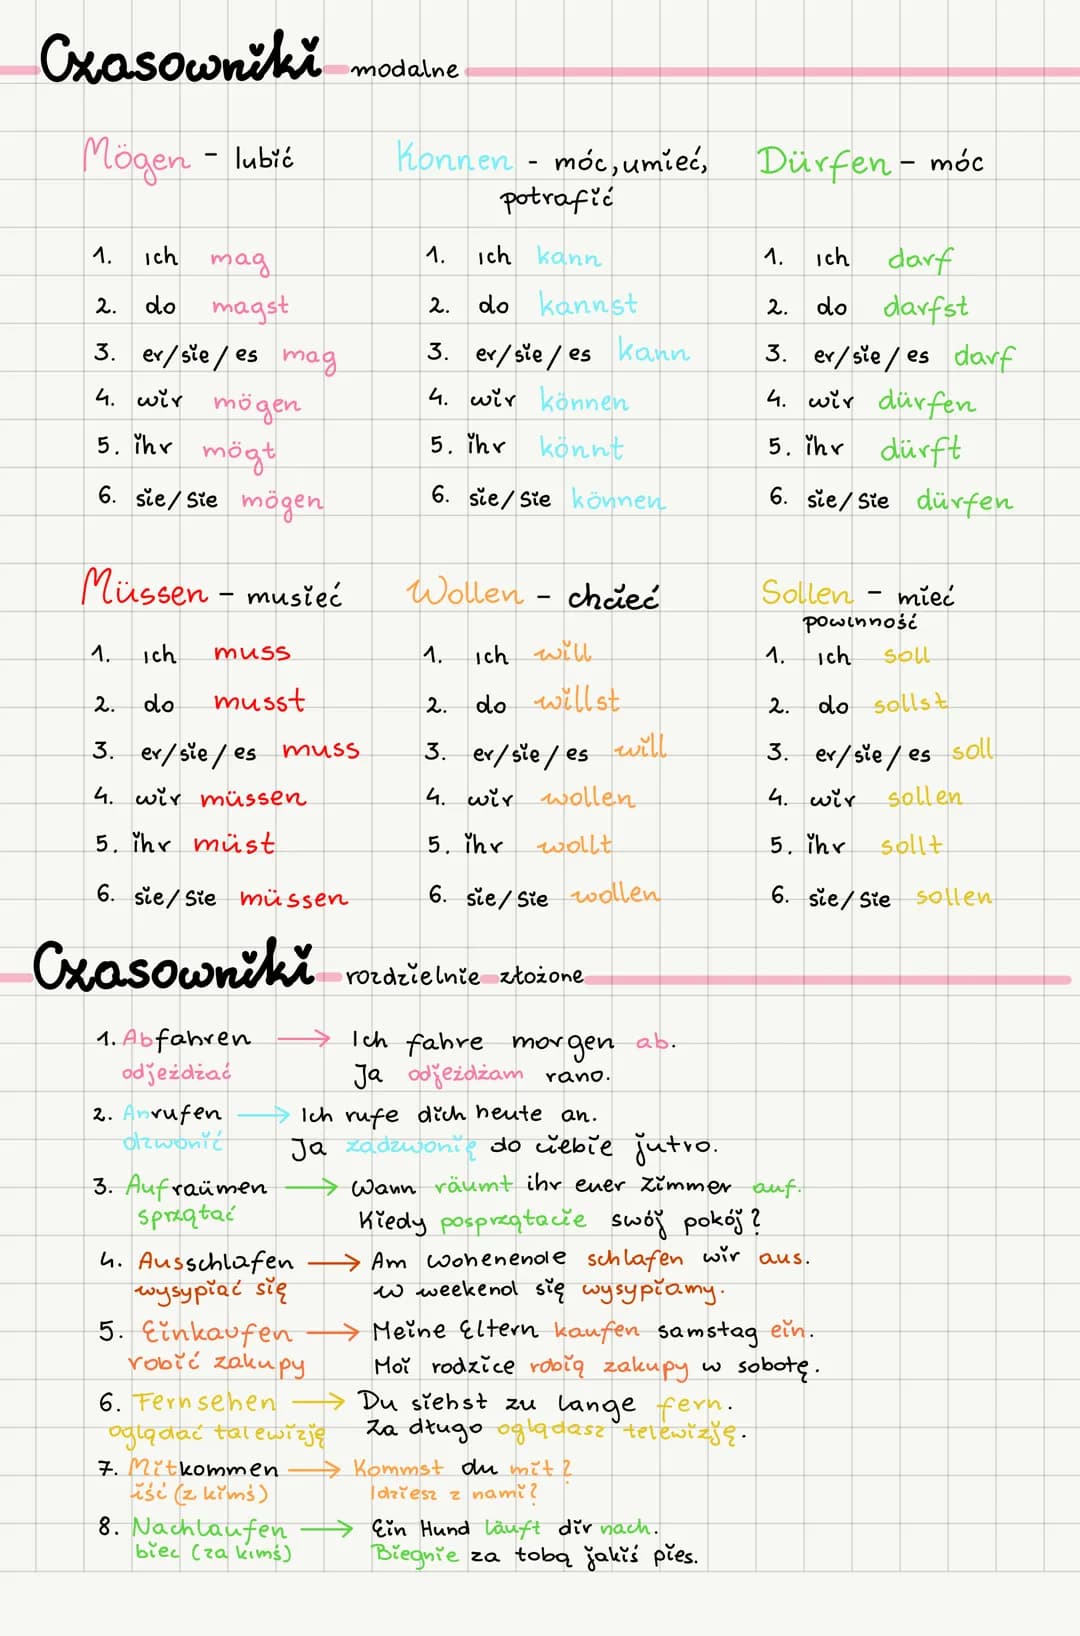 Czasowniki modalne
Mögen - lubić
1. ich mag
2. do magst
3. er/sie/es mag
4. wir mögen
5. ihr mögt
6. sie/Sie mögen
Konnen - móc, umieć,
potrafić
1. ich kann
2. do kannst
3. er/sie/es kann
4. wir können
5. ihr könnt
6. sie/Sie können
Dürfen - móc
1. ich darf
2. do darfst
3. er/sie/es darf
4. wir dürfen
5. ihr dürft
6. sie/Sie dürfen
Müssen - musieć
1. ich muss
2. do musst
3. er/sie/es muss
4. wir müssen
5. ihr müst
6. sie/Sie müssen
Wollen - chcieć
1. ich will
2. do willst
3. er/sie/es will
4. wir wollen
5. ihr wollt
6. sie/Sie wollen
Sollen - mieć
powinność
1. ich soll
2. do sollst
3. er/sie/es soll
4. wir sollen
5. ihr sollt
6. sie/Sie sollen
Czasowniki rozdzielnie złożone
1. Abfahren → Ich fahre morgen ab.
odjeżdżać Ja odjeżdżam rano.
2. Anrufen → Ich rufe dich heute an.
dzwonić Ja zadzwonię do ciebie jutro.
3. Aufraümen → Wann räumt ihr euer Zimmer auf.
sprzątać Kiedy posprzątacie swój pokój?
4. Ausschlafen → Am wohenende schlafen wir aus.
wysypiać się w weekend się wysypiamy.
5. Einkaufen → Meine Eltern kaufen samstag ein.
robić zakupy Moi rodzice robią zakupy w sobotę.
6. Fernsehen → Du siehst zu lange fern.
oglądać talewizję Za długo oglądasz telewizję.
7. Mitkommen → Kommst du mit?
iść (z kimś) Idziesz z nami?
8. Nachlaufen → Ein Hund läuft dir nach.
biec (za kimś) Biegnie za tobą jakiś pies.